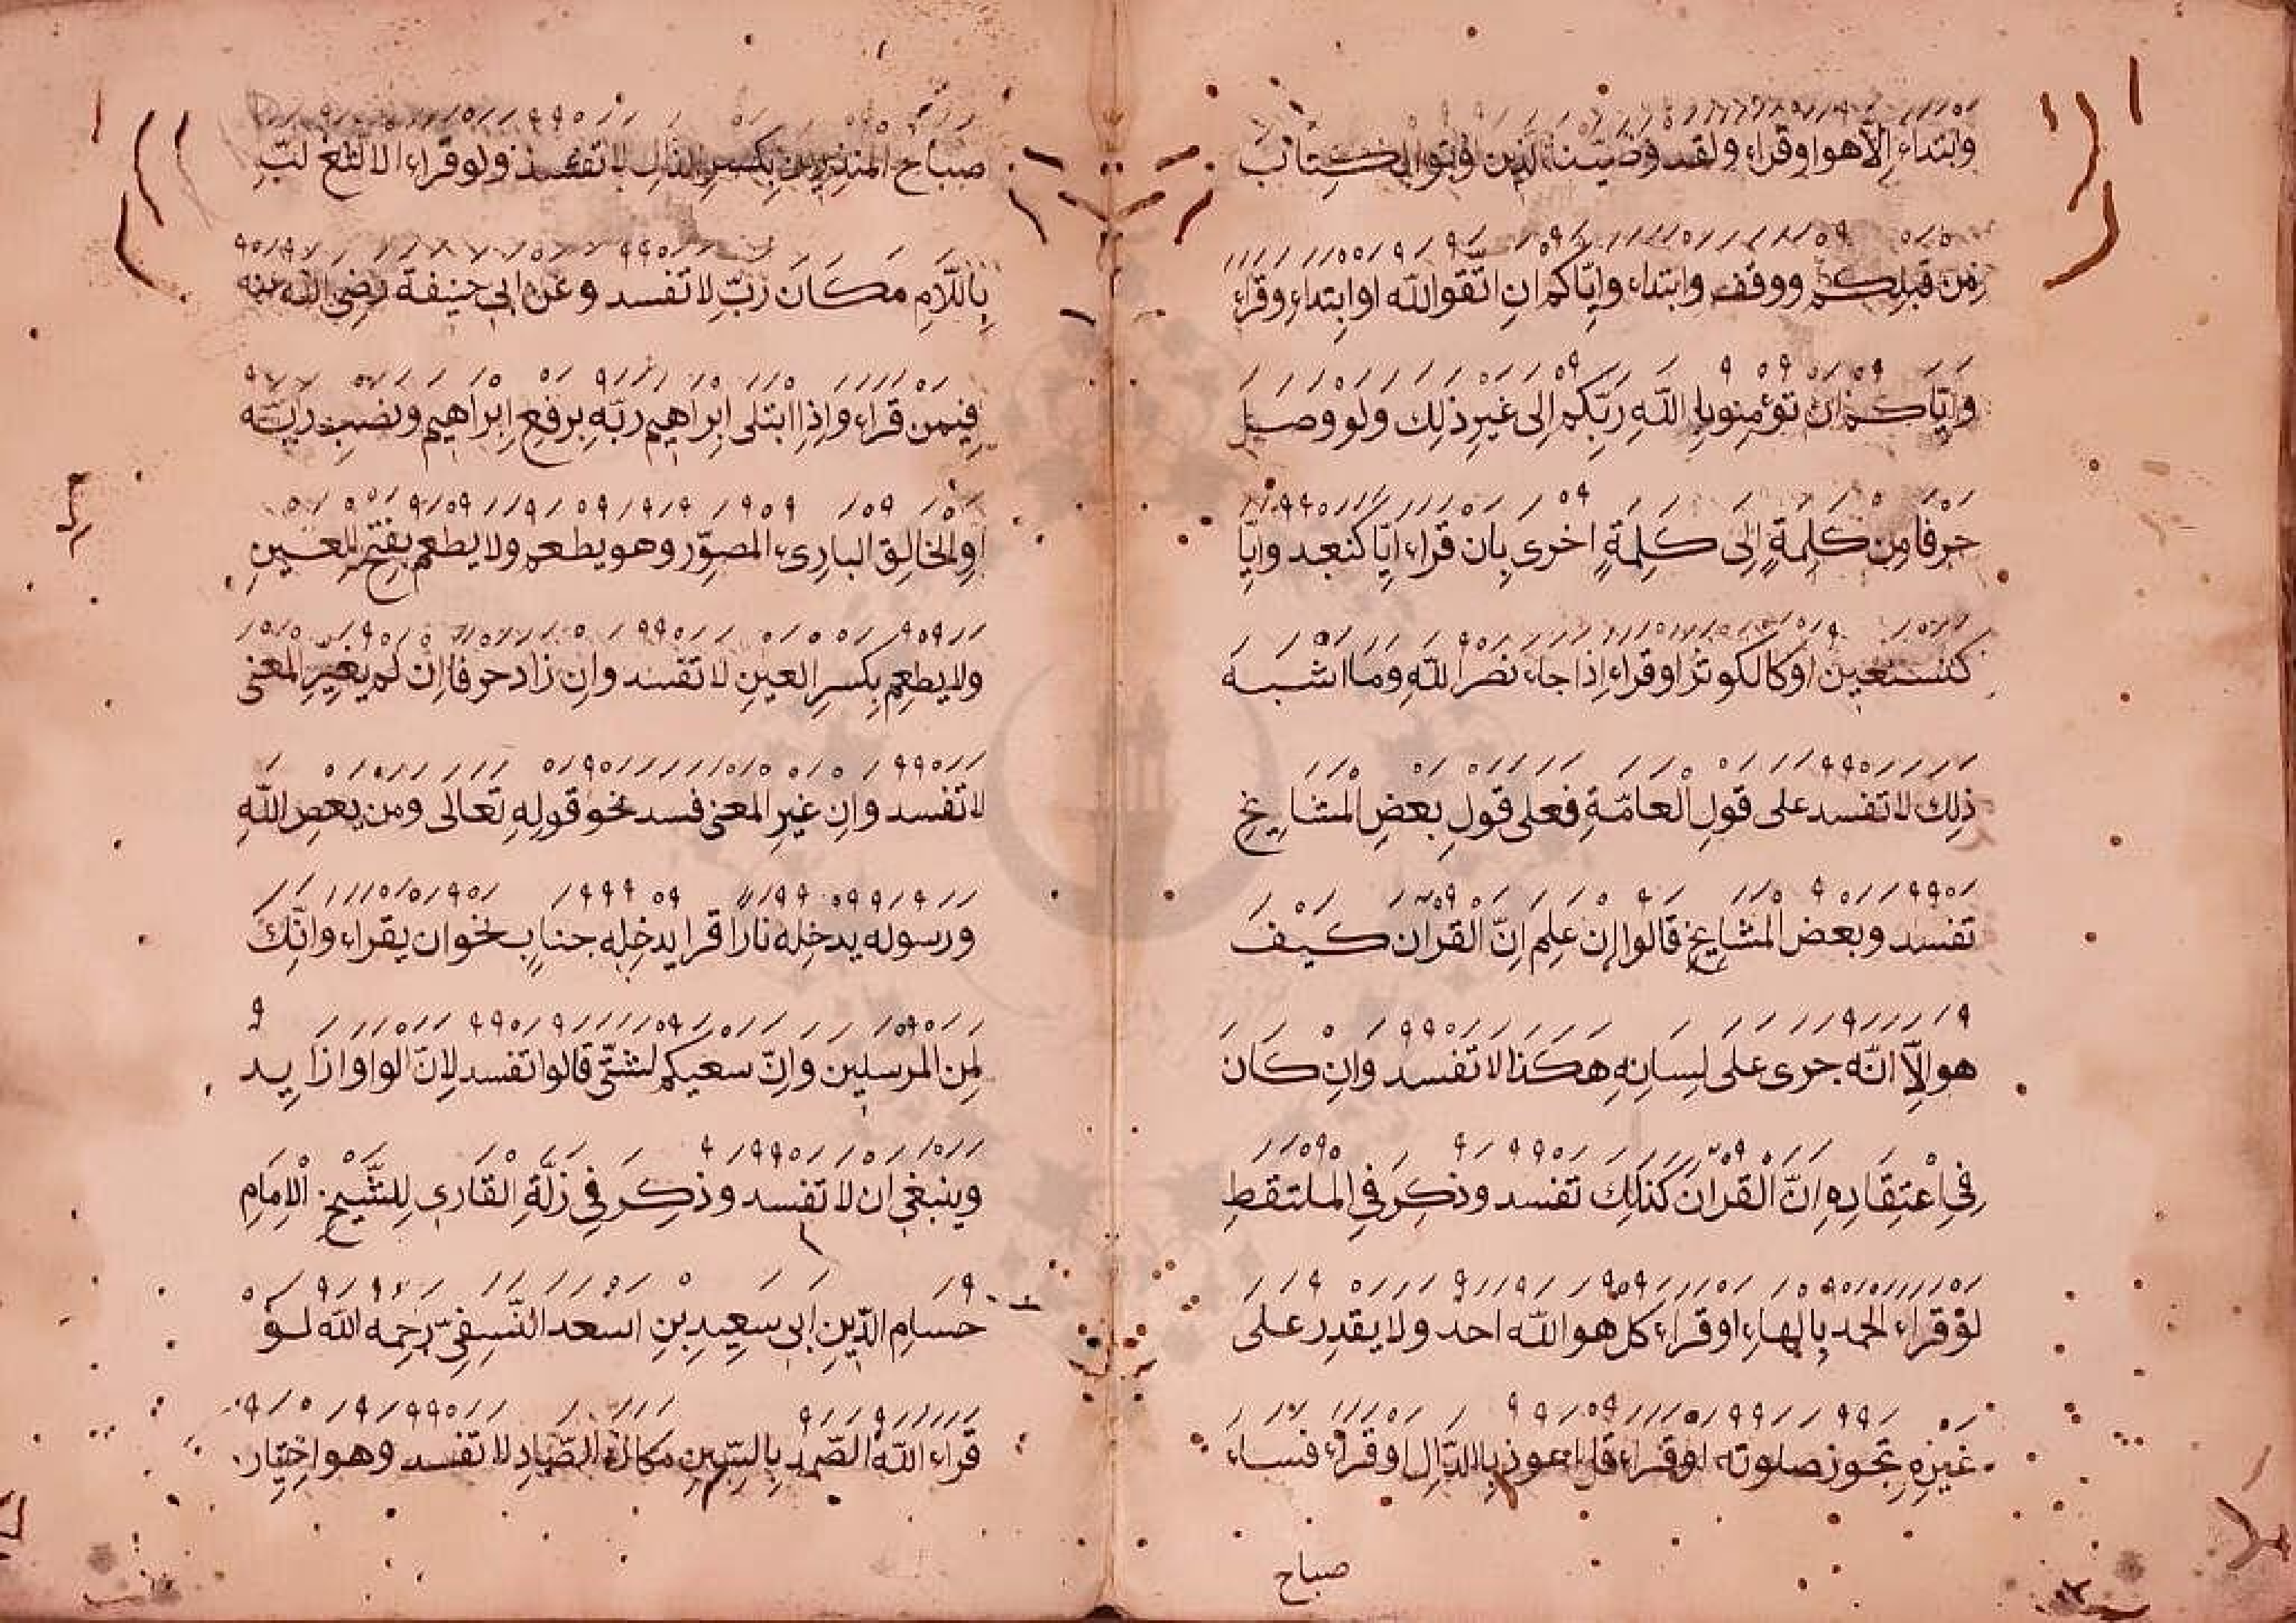 وابتداء الاهو او قراء ولقد وصينا الذين اوتوا الكتاب
من قبلكم ووقف وابتداء واياكم ان اتقوا الله او ابتداء وقراء
واياكم ان تؤمنو بالله ربكم الى غير ذلك ولو وصل
حرفا من كلمة الى كلمة اخرى بان قراء ايا كنعبد وايا
كنستعين او كا لكوثر او قراء اذا جاء نصر الله وما اشبه
ذلك لا تفسد على قول العامة فعلى قول بعض المشايخ
تفسد وبعض المشايخ قالوا ان علم ان القران كيف
هو الا انه جرى على لسانه هكذا لا تفسد وان كان
في اعتقاده ان القران كذلك تفسد وذكر في الملتقط
لو قراء الحمد بالهاء او قراء كل هو الله احد ولا يقدر على
غيره تجوز صلوته او قراء قل اعوذ بالدال او قراء فساء
صباح
صباح المنذرين بكسر الذال لا تفسد ولو قراء الالثغ لب
باللام مكان رب لا تفسد وعن ابى حنيفة رضى الله عنه
فيمن قراء واذا ابتلى ابراهيم ربه برفع ابراهيم ونصب ربه
او الخالق البارىء المصور وهو يطعم ولا يطعم بفتح العين
ولا يطعم بكسر العين لا تفسد وان زاد حرفا ان لم يغير المعنى
لا تفسد وان غير المعنى فسد نحو قوله تعالى ومن يعص الله
ورسوله يدخله نارا قرا يدخله جنا ب نحو ان يقراء وانك
لمن المرسلين وان سعيكم لشتى قالوا تفسد لان الواو ازايد
وينبغى ان لا تفسد وذكر في زلة القارى للشيخ الامام
حسام الدين ابى سعيد بن اسعد النسفى رحمه الله لو
قراء الله الصمد بالسين مكان الصاد لا تفسد وهو اختيار